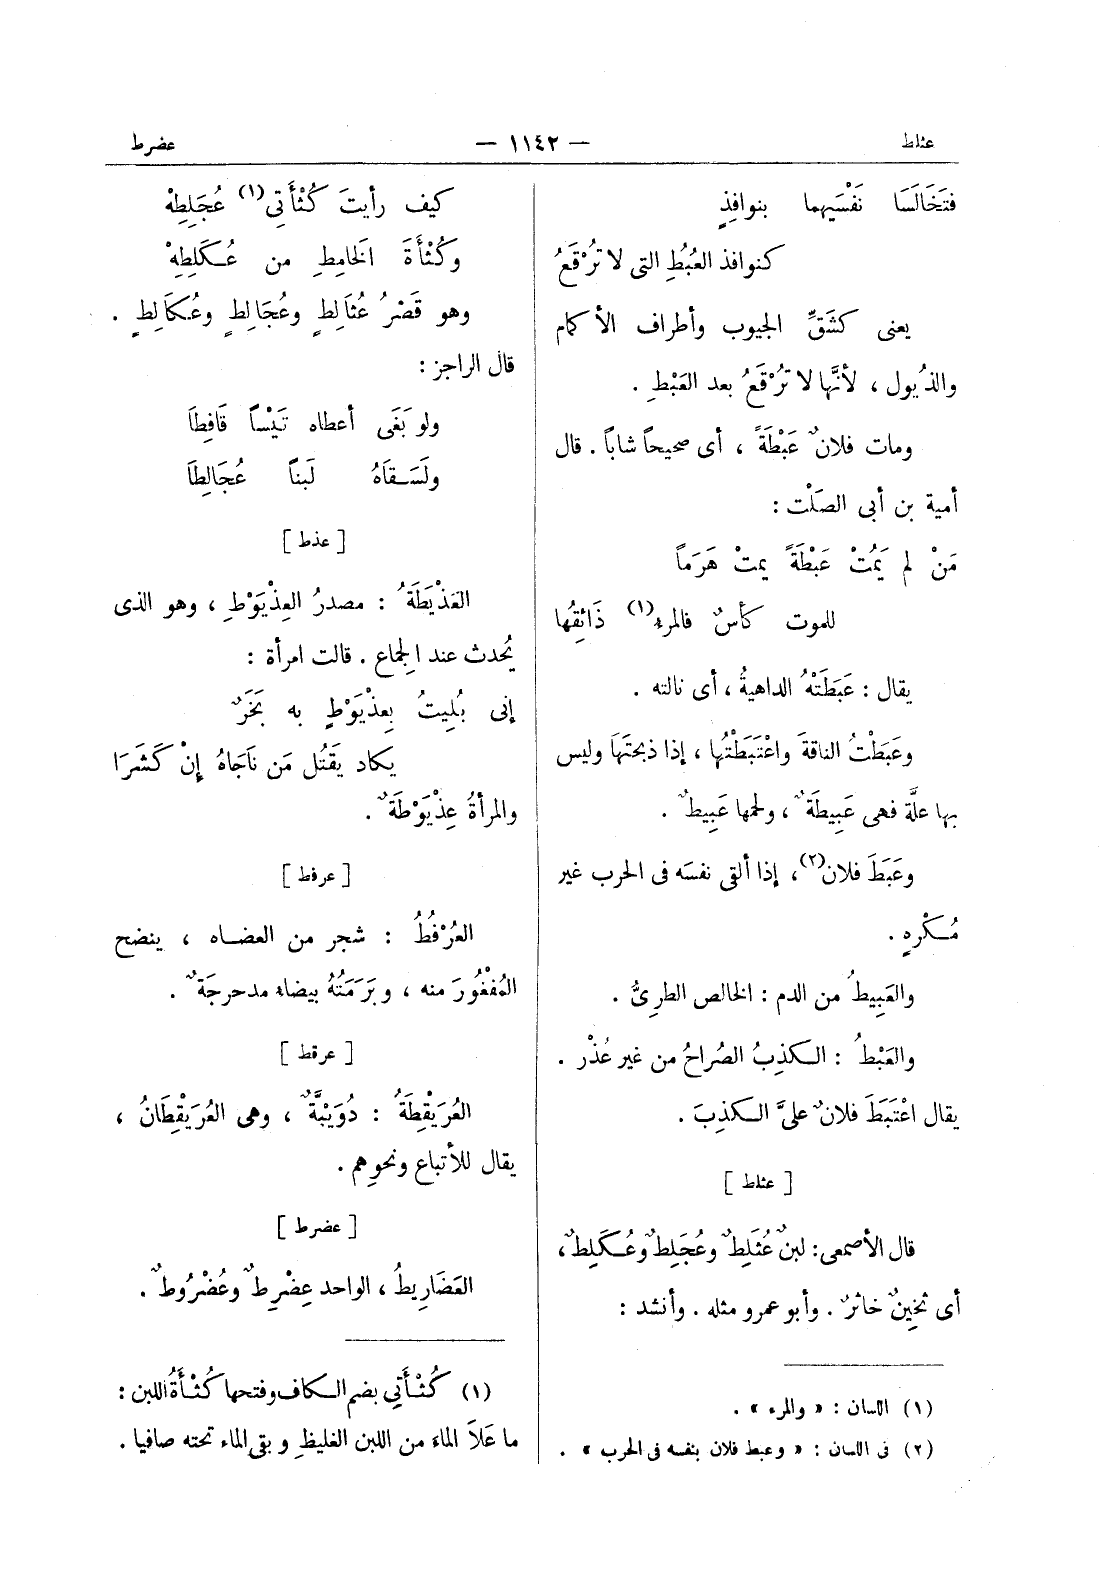 عثلط
— ١١٤٢ —
عضرط
فتَخَالَسَا نَفْسَيهما بنوافِذٍ
كنوافذ العُبُطِ التى لا تُرْقَعُ
يعنى كشَقِّ الجيوب وأطراف الأكمام
والذُيول ، لأنَّها لا تُرْقَعُ بعد العَبْطِ .
ومات فلانٌ عَبْطَةً ، أى صحيحاً شاباً . قال
أمية بن أبى الصَلْت :
مَنْ لم يَمُتْ عَبْطَةً يمتْ هَرَماً
للموت كأسٌ فالمرء(١) ذَائِقُها
يقال : عَبَطَتْهُ الداهيةُ ، أى نالته .
وعَبَطْتُ الناقةَ واعْتَبَطْتُها ، إذا ذبحتَهَا وليس
بها علَّة فهى عَبِيطَةٌ ، ولحمها عَبِيطٌ .
وعَبَطَ فلان(٢) ، إذا ألقى نفسَه فى الحرب غير
مُكْرهٍ .
والعَبِيطُ من الدم : الخالص الطرِىُّ .
والعَبْطُ : الكذِبُ الصُراحُ من غير عُذْر .
يقال اعْتَبَطَ فلانٌ علىَّ الكذِبَ .
[ عثلط ]
قال الأصمعى : لبنٌ عُثَلِطٌ وعُجَلِطٌ وعُكَلِطٌ ،
أى ثخينٌ خاثرٌ . وأبو عمرو مثله . وأنشد :
(١) اللسان : « والمرء » .
(٢) فى اللسان : « وعبط فلان بنفسه فى الحرب » .
كيف رأيتَ كُثْأَتِى(١) عُجَلِطِهْ
وكُثْأَةَ الخامِطِ من عُكَلِطِهْ
وهو قَصْرُ عُثَالِطٍ وعُجَالِطٍ وعُكَالِطٍ .
قال الراجز :
ولو بَغَى أعطاه تَيْساً قَافِطَا
ولَسَقَاهُ لَبناً عُجَالِطَا
[ عذط ]
العَذْيَطَةُ : مصدرُ العِذْيَوْطِ ، وهو الذى
يُحدث عند الجِماع . قالت امرأة :
إنى بُلِيتُ بِعِذْيَوْطٍ به بَخَرٌ
يكاد يَقْتُل مَن نَاجَاهُ إنْ كَشَرَا
والمرأةُ عِذْيَوْطَةٌ .
[ عرفط ]
العُرْفُطُ : شجر من العضاه ، ينضح
المُغْفُورَ منه ، وبَرَمَتُهُ بيضاء مدحرجَةٌ .
[ عرقط ]
العُرَيْقِطَةُ : دُوَيْبَّةٌ ، وهى العُرَيْقِطَانُ ،
يقال للأتباع ونحوِهم .
[ عضرط ]
العَضَارِيطُ ، الواحد عِضْرِطٌ وعُضْرُوطٌ .
(١) كُثْأَتِى بضم الكاف وفتحها كُثْأَةُ اللبن :
ما عَلَا الماءَ من اللبن الغليظِ وبقى الماء تحته صافيا .